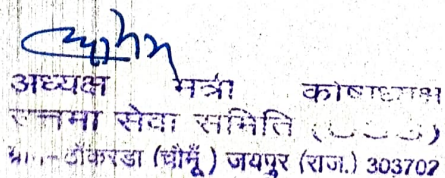 अध्यक्ष मंत्री कोषाध्यक्ष
सेवा समिति
ग्रा.-टांकरडा (चौमूँ) जयपुर (राज.) 303702